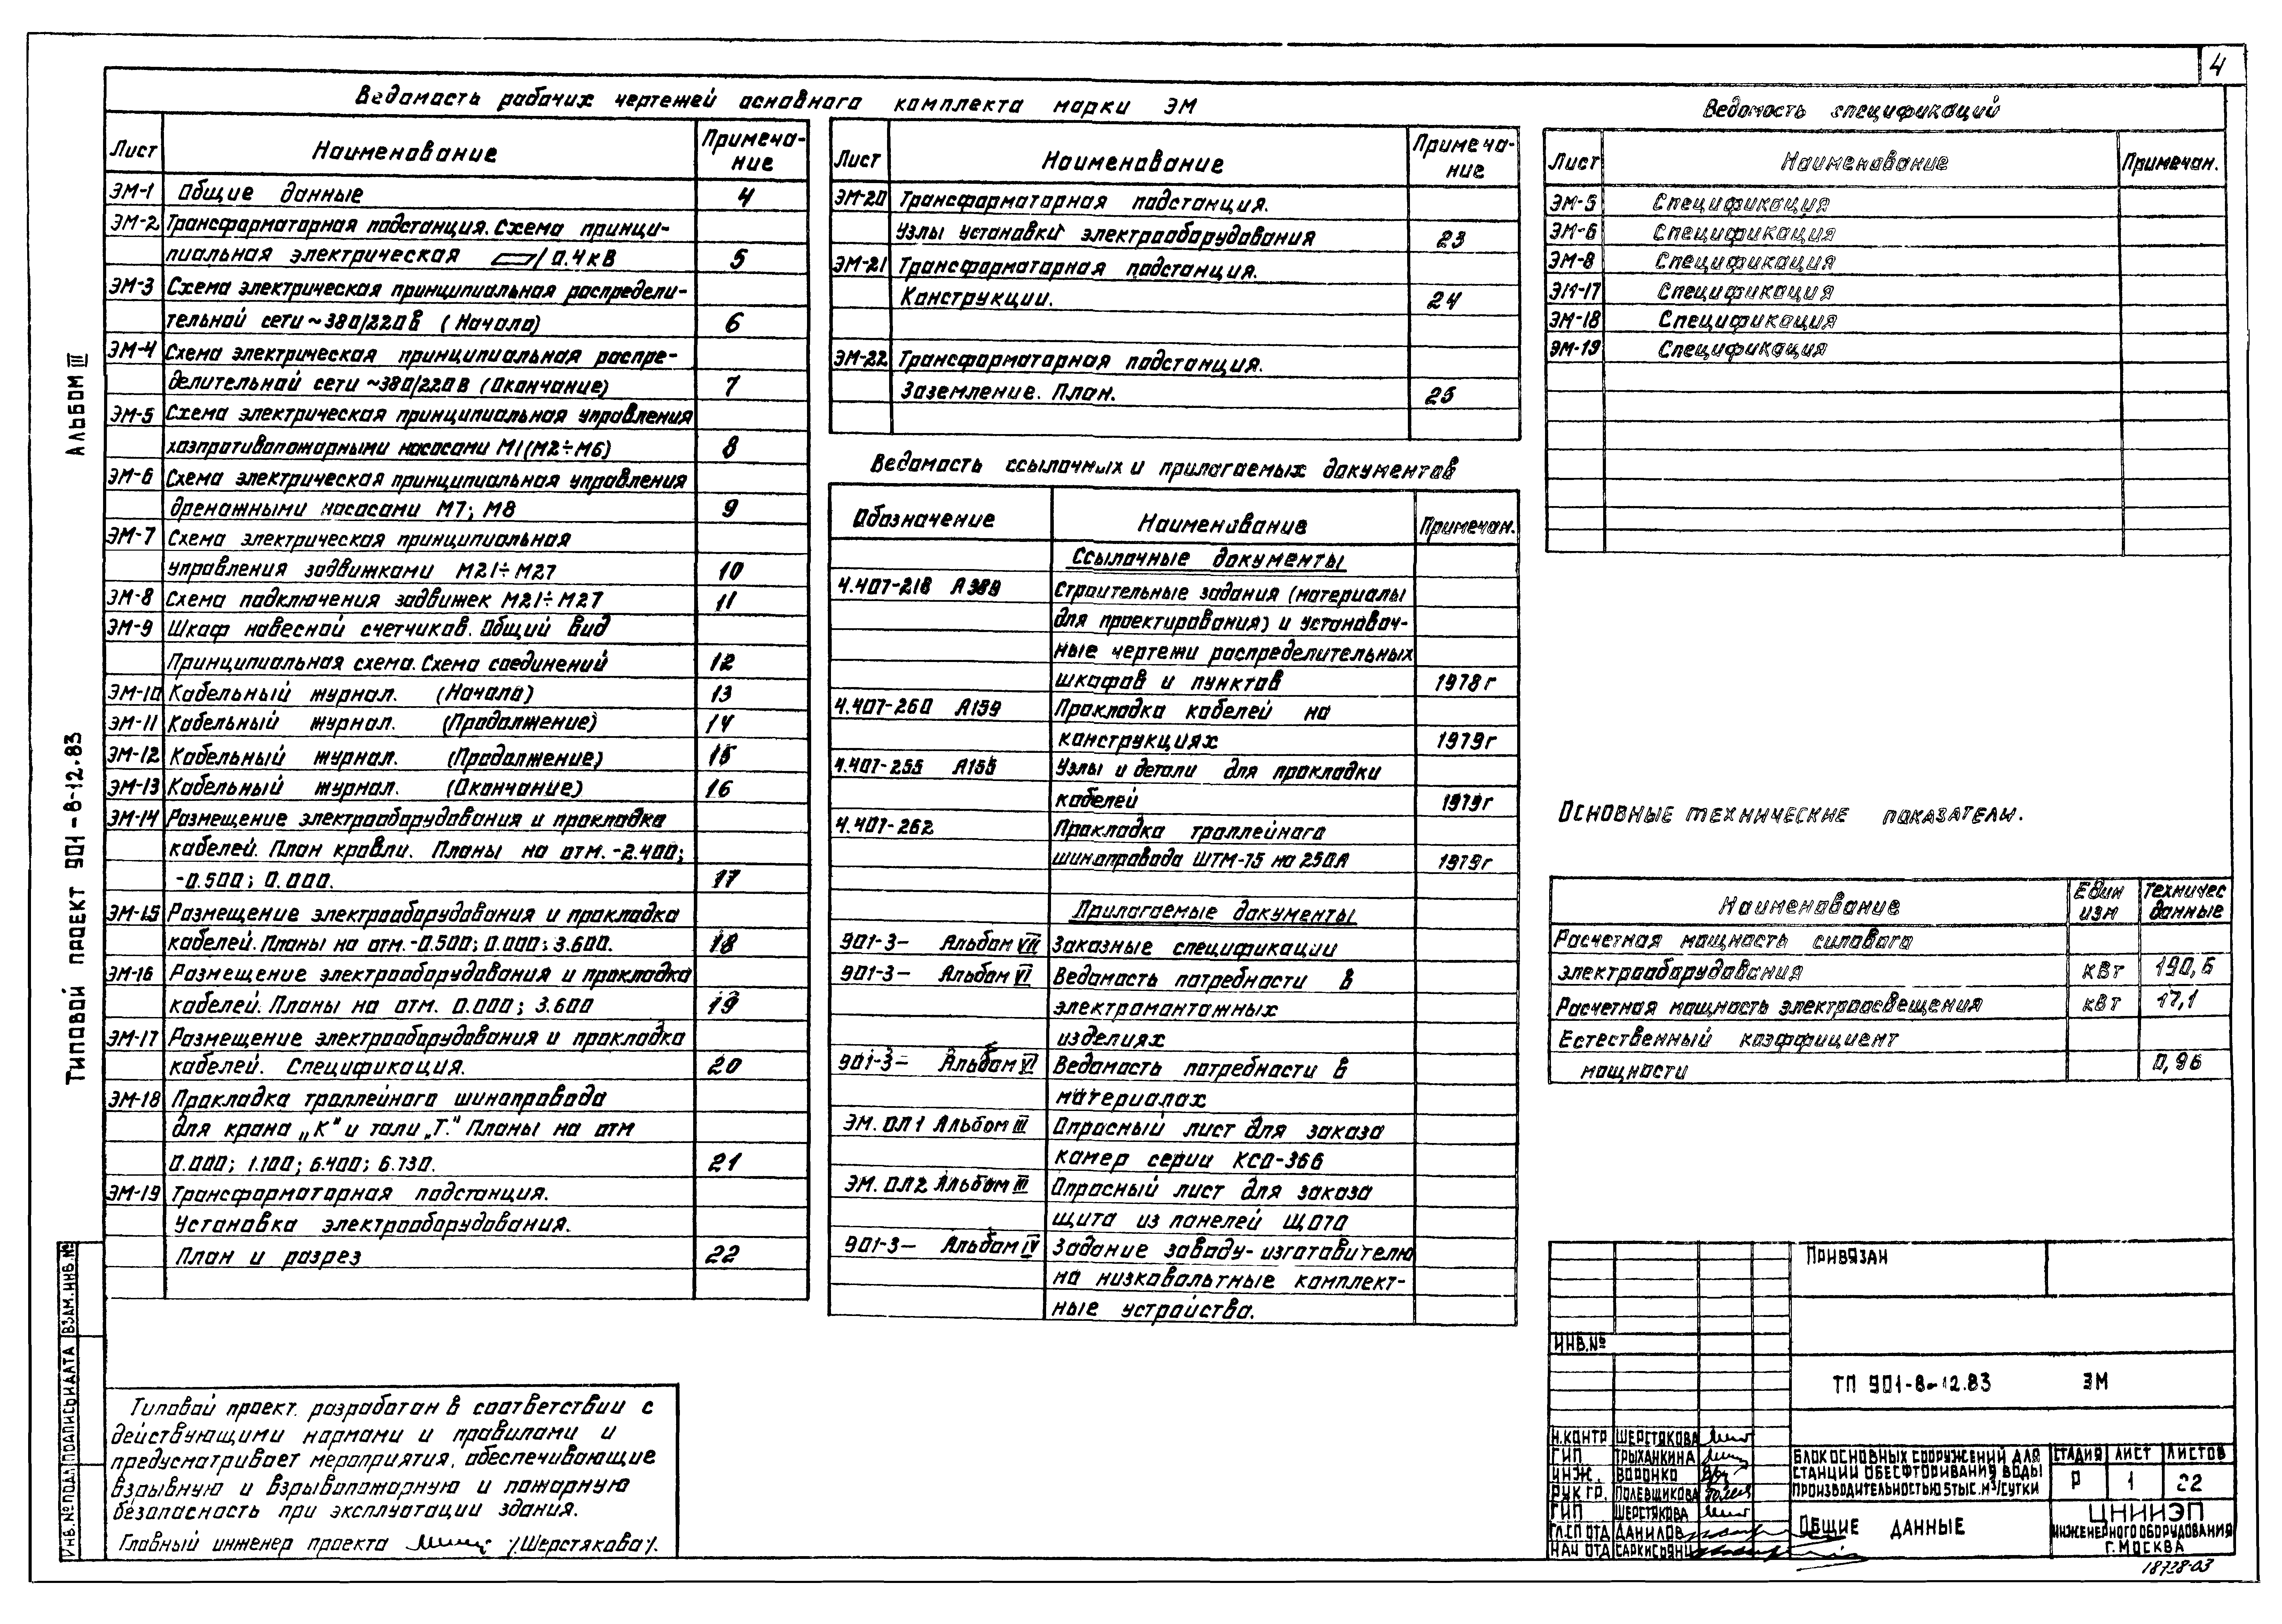 4
Ведомость рабочих чертежей основного комплекта марки ЭМ
Лист Наименование Примеча-
ние
ЭМ-1 Общие данные 4
ЭМ-2 Трансформаторная подстанция. Схема принци-
пиальная электрическая /0.4кВ 5
ЭМ-3 Схема электрическая принципиальная распредели-
тельной сети ~380/220В (Начало) 6
ЭМ-4 Схема электрическая принципиальная распре-
делительной сети ~380/220В (Окончание) 7
ЭМ-5 Схема электрическая принципиальная управления
хозпротивопожарными насосами М1(М2÷М6) 8
ЭМ-6 Схема электрическая принципиальная управления
дренажными насосами М7; М8 9
ЭМ-7 Схема электрическая принципиальная
управления задвижками М21÷М27 10
ЭМ-8 Схема подключения задвижек М21÷М27 11
ЭМ-9 Шкаф навесной счетчиков. Общий вид
Принципиальная схема. Схема соединений 12
ЭМ-10 Кабельный журнал. (Начало) 13
ЭМ-11 Кабельный журнал. (Продолжение) 14
ЭМ-12 Кабельный журнал. (Продолжение) 15
ЭМ-13 Кабельный журнал. (Окончание) 16
ЭМ-14 Размещение электрооборудования и прокладка
кабелей. План кровли. Планы на отм. -2.400;
-0.500; 0.000. 17
ЭМ-15 Размещение электрооборудования и прокладка
кабелей. Планы на отм. -0.500; 0.000; 3.600. 18
ЭМ-16 Размещение электрооборудования и прокладка
кабелей. Планы на отм. 0.000; 3.600 19
ЭМ-17 Размещение электрооборудования и прокладка
кабелей. Спецификация. 20
ЭМ-18 Прокладка троллейного шинопровода
для крана „К" и тали „Т." Планы на отм
0.000; 1.100; 6.400; 6.730. 21
ЭМ-19 Трансформаторная подстанция.
Установка электрооборудования.
План и разрез 22
Лист Наименование Примеча-
ние
ЭМ-20 Трансформаторная подстанция.
Узлы установки электрооборудования 23
ЭМ-21 Трансформаторная подстанция.
Конструкции. 24
ЭМ-22 Трансформаторная подстанция.
Заземление. План. 25
Ведомость ссылочных и прилагаемых документов
Обозначение Наименование Примечан.
Ссылочные документы
4.407-218 А389 Строительные задания (материалы
для проектирования) и установоч-
ные чертежи распределительных
шкафов и пунктов 1978г
4.407-260 А159 Прокладка кабелей на
конструкциях 1979г
4.407-255 А155 Узлы и детали для прокладки
кабелей 1979г
4.407-262 Прокладка троллейного
шинопровода ШТМ-75 на 250А 1979г
Прилагаемые документы
901-3- Альбом VII Заказные спецификации
901-3- Альбом VI Ведомость потребности в
электромонтажных
изделиях
901-3- Альбом VI Ведомость потребности в
материалах
ЭМ. ОЛ1 Альбом III Опросный лист для заказа
камер серии КСО-366
ЭМ. ОЛ2 Альбом III Опросный лист для заказа
щита из панелей ЩО70
901-3- Альбом IV Задание заводу-изготовителю
на низковольтные комплект-
ные устройства.
Ведомость спецификаций
Лист Наименование Примечан.
ЭМ-5 Спецификация
ЭМ-6 Спецификация
ЭМ-8 Спецификация
ЭМ-17 Спецификация
ЭМ-18 Спецификация
ЭМ-19 Спецификация
Основные технические показатели.
Наименование Един изм Техничес данные
Расчетная мощность силового
электрооборудования кВт 190,6
Расчетная мощность электроосвещения кВт 17,1
Естественный коэффициент
мощности 0,96
Альбом III
Типовой проект 901-8-12.83
Инв.№подл Подпись и дата Взам.инв.№
Типовой проект разработан в соответствии с
действующими нормами и правилами и
предусматривает мероприятия, обеспечивающие
взрывную и взрывопожарную и пожарную
безопасность при эксплуатации здания.
Главный инженер проекта /Шерстякова/.
Привязан
Инв.№
ТП 901-8-12.83 ЭМ
Н.контр Шерстякова
ГИП Трыханкина
Инж. Воронко
Рук гр. Полевщикова
ГИП Шерстякова
Гл.сп отд Данилов
Нач отд Саркисьянц
Блок основных сооружений для
станции обесфторивания воды
производительностью 5 тыс. м³/сутки
Стадия Лист Листов
Р 1 22
Общие данные
ЦНИИЭП
инженерного оборудования
г. Москва
18728-03